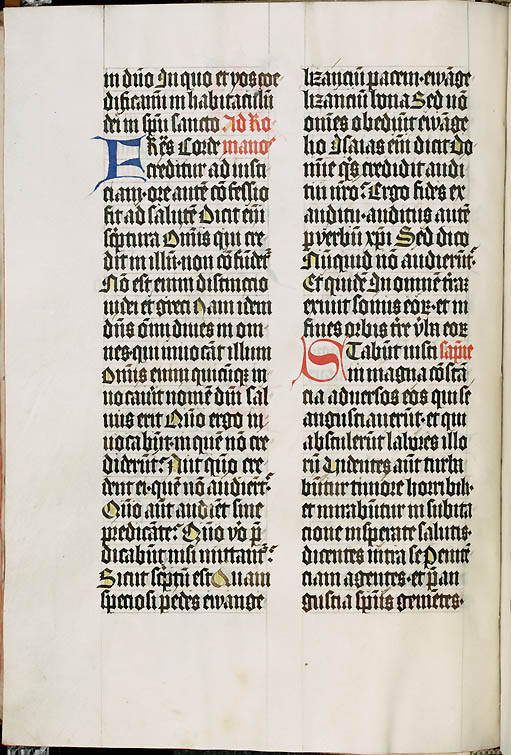 in dn̄o In quo et vos coe
dificamī in habitaculū
dei in spū sancto Ad Ro
FRēs Corde manos
creditur ad iusti
ciam· ore autē cōfessio
fit ad salutē Dicit eīn
scͥptura Om̄is qui cre
dit in illū· non cōfūdet᷑
Nō est enim distinctio
iudei et greci Nam idem
dn̄s om̄i diues in om
nes· qui inuocāt illum
Om̄is enim quicūqꝫ in
uocauīt nomē dn̄i sal
uus erit Quō ergo in
uocabūt· in quē nō cre
diderūt? Aut quō cre
dent ei· quē nō audierūt?
Quō aūt audiēt sine
predicāte? Quō v̊o p̄
dicabūt nisi mittant᷑?
Sicut scͥptū est Quam
speciosi pedes ewange
lizanciū pacem· ewāge
lizanciū bona Sed nō
om̄es obediūt ewāge
lio Isaias eīn dicit Do
mīe qͥs credidit audi
tui nr̄o? Ergo fides ex
auditu· auditus autē
ꝑ verbū xp̄i Sed dico
Nūquid nō audierūt?
Et quidē In omnē trāȝ
exiuit sonus eoꝝ· et in
fines orbis tre v̄ba eoꝝ
STabūt iusti sapīe
in magna cōstā
cia aduersos eos qui se
angustiauerūt· et qui
abstulerūt labores illo
rū Uidentes aūt turba
būtur timore horribili·
et mirabūtur in subita
cione insperate salutis·
dicentes intra se Penitē
ciam agentes· et p̄ an
gustia spūs gemētes·